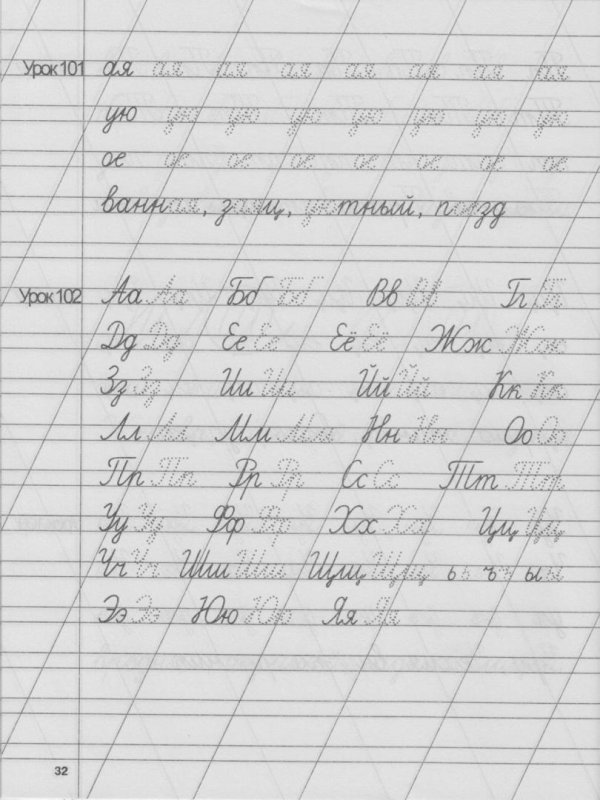 Урок 101 ая ая ая ая ая ая ая ая
ую ую ую ую ую ую ую ую
ое ое ое ое ое ое ое ое
ванная, заяц, уютный, поезд
Урок 102 Аа Аа Бб Бб Вв Вв Гг Гг
Дд Дд Ее Ее Ёё Ёё Жж Жж
Зз Зз Ии Ии Йй Йй Кк Кк
Лл Лл Мм Мм Нн Нн Оо Оо
Пп Пп Рр Рр Сс Сс Тт Тт
Уу Уу Фф Фф Хх Хх Цц Цц
Чч Чч Шш Шш Щщ Щщ ь ь ъ ъ ы ы
Ээ Ээ Юю Юю Яя Яя
32